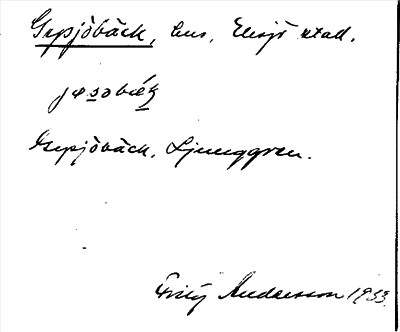 Gepjöbäck, hus, Eksjö stad.
jesobæk
Gepjöbäck, Ljunggren.
Andersson 1933.